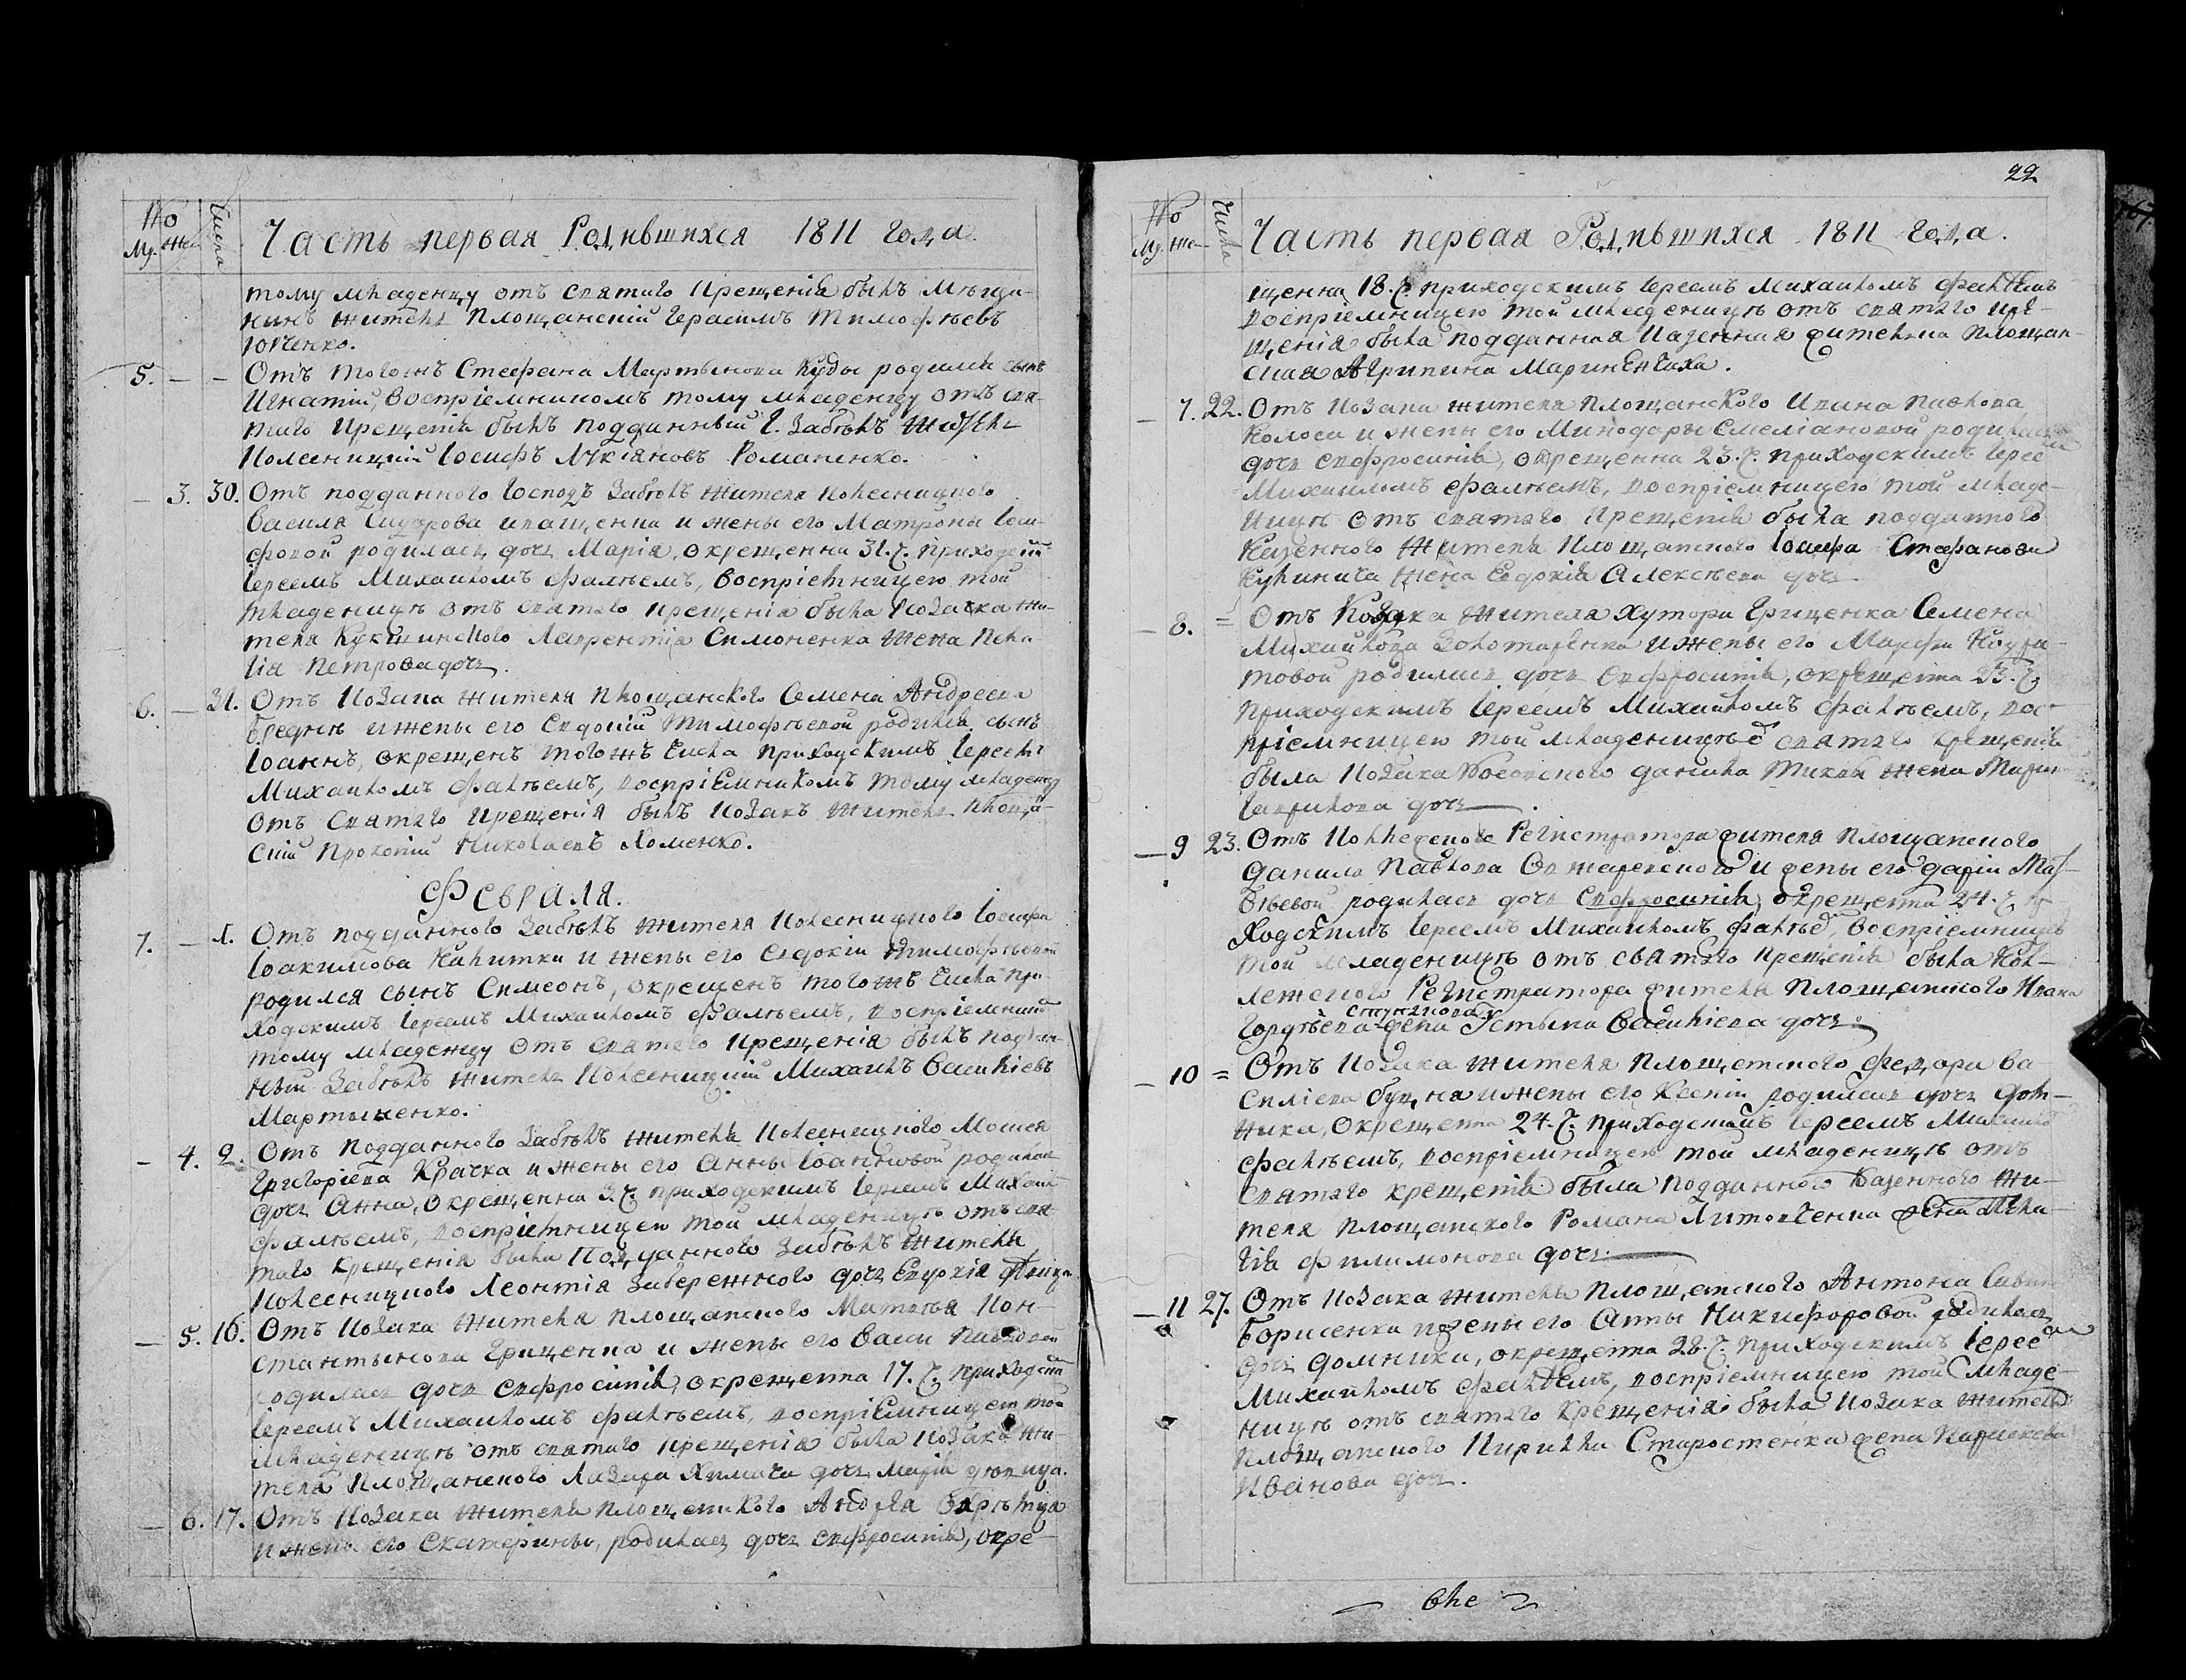 22
№ Числа
Му. Же.
Часть первая Родившихся 1811 года.
тому младенцу отъ святаго крещенія былъ мѣща-
нинъ житель площанскій Герасимъ Тимофѣевъ
Юрченко.
5. — — Отъ тогожъ Стефана Мартынова Кубы родился сынъ
Игнатій, воспріемникомъ тому младенцу отъ свя-
таго крещенія былъ подданный Г. Забѣлъ житель
Іосифъ Лукіяновъ Романенко.
— 3. 30. Отъ подданного господъ Забѣлъ жителя
Василя Сидорова Иващенка и жены его Матроны Іоси-
фовой родилась дочь Марія, окрещенна 31. ч. приходскимъ
Іереемъ Михаиломъ Фалѣемъ, воспріемницею той
младеницѣ отъ святаго крещенія была козака жи-
теля Кукшинского Лаврентія Симоненка жена Пела
гія Петрова дочь.
6. — 31. Отъ козака жителя площанского Семена Андреева
Бреднѣ и жены его Евдокіи Тимофѣевой родился сынъ
Іоаннъ, окрещенъ тогожъ числа приходскимъ Іереемъ
Михаиломъ Фалѣемъ, воспріемникомъ тому младенцу
отъ святаго крещенія былъ козакъ житель площан-
скій Прокопій Николаевъ Хоменко.
Февраля.
7. — 1. Отъ подданного Забѣлъ жителя Іосифа
Іоакимова Никитки и жены его Евдокіи Тимофѣевой
родился сынъ Симеонъ, окрещенъ тогожъ числа при-
ходскимъ Іереемъ Михаиломъ Фалѣемъ, воспріемникомъ
тому младенцу отъ святаго крещенія былъ поддан-
ный Забѣлъ житель Михаилъ Василіевъ
Мартыненко.
— 4. 2. Отъ подданного Забѣлъ жителя Моисея
Григоріева Крачка и жены его Анны Іоанновой родилась
дочь Анна, окрещенна 3. ч. приходскимъ Іереемъ Михаил
Фалѣемъ, воспріемницею той младеницѣ отъ свя
таго крещенія была подданного Забѣлъ жителя
Леонтія Забережного дочь Евдокія дѣвица.
— 5. 16. Отъ козака жителя площанского Матвѣя Кон-
стантынова Грищенка и жены его Васи Павловой
родилась дочь Евфросинія, окрещенна 17. ч. приходским
Іереемъ Михаиломъ Фалѣемъ, воспріемницею той
младеницѣ отъ святаго крещенія была козака жи-
теля площанского Лазара Химича дочь Марія дѣвица.
— 6. 17. Отъ козака жителя площанского Андрѣя
и жены его Екатерины, родилась дочь Евфросинія, окре-
№ Числа
Му. Же.
Часть первая Родившихся 1811 года.
щенна 18. ч. приходскимъ Іереемъ Михаиломъ Фалѣемъ
воспріемницею той младеницѣ отъ святаго кре-
щенія была подданная казенная жителька площан-
ская Агрипина Маринченчиха.
— 7. 22. Отъ козака жителя площанского Ивана Павлова
Колоса и жены его Минодоры Емеліановой родилась
дочь Евфросинія, окрещенна 23. ч. приходскимъ Іерее
Михаиломъ Фалѣемъ, воспріемницею той младе-
ницѣ отъ святаго крещенія была подданного
казенного жителя площанского Іосифа Стефанова
жена Евдокія Алексѣева дочь
— 8. = Отъ козака жителя хутора Грищенка Семена
Михайлова Золотаренка и жены его Марфы Кодра-
товой родилась дочь Евфросинія, окрещенна 23. ч.
приходскимъ Іереемъ Михаиломъ Фалѣемъ, вос-
пріемницею той младеницѣ ѿ святаго крещенія
была козака Данила жена Мари
Гаврилова дочь.
— 9 23. Отъ Колледеного Регистратора жителя площанского
Данила Павлова и жены его Даріи Мат-
вѣевой родилась дочь Евфросинія, окрещенна 24. ч. пр
ходскимъ Іереемъ Михаиломъ Фалѣе, воспріемницею
той младеницѣ отъ святаго крещенія была Кол-
леженого Регистратора жителя площанского Ивана
Гордѣева жена Устына Василіева дочь.
— 10 = Отъ козака жителя площанского Федора Ва
силіева и жены его Ксеніи родилась дочь Дом-
ника, окрещенна 24. ч. приходскимъ Іереемъ Михаило
Фалѣемъ, воспріемницею той младеницѣ отъ
святаго крещенія была подданного казенного жи-
теля площанского Романа Литовченка жена Пела-
гія Филимонова дочь.
— 11 27. Отъ козака жителя площанского Антона Савин
Борисенка и жены его Анны Никифоровой родилась
дочь Домникія, окрещенна 28. ч. приходскимъ Іерее
Михаиломъ Фалѣемъ, воспріемницею той младе-
ницѣ отъ святаго крещенія была козака жителя
площанского Кирилла Старостенка жена
Иванова дочь.